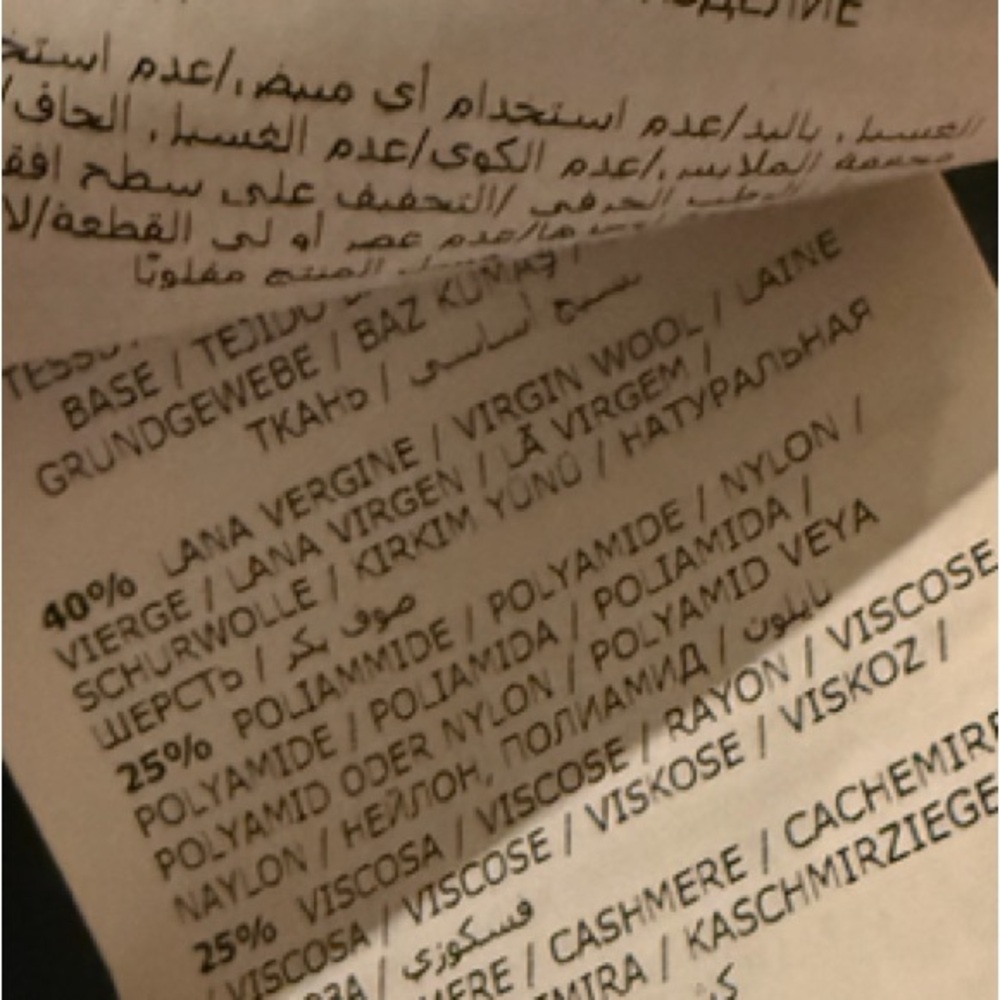 عدم استخدام أي مبيض./عدم استخ
الغسيل. باليد/
مجففة الملابس./عدم الكوي/عدم الغسيل. الجاف/
التجفيف على سطح افق
عدم عصر أو لي القطعة/لا
المنتج مقلوبًا
BASE / TEJIDO
GRUNDGEWEBE / BAZ KUMAŞ /
ТКАНЬ / نسيج أساسي
40% LANA VERGINE / VIRGIN WOOL / LAINE
VIERGE / LANA VIRGEN / LÃ VIRGEM /
SCHURWOLLE / KIRKIM YÜNÜ / НАТУРАЛЬНАЯ
ШЕРСТЬ / صوف بكر
25% POLIAMMIDE / POLYAMIDE / NYLON /
POLYAMIDE / POLIAMIDA / POLIAMIDA /
POLYAMID ODER NYLON / POLYAMID VEYA
NAYLON / НЕЙЛОН, ПОЛИАМИД / نايلون
25% VISCOSA / VISCOSE / RAYON / VISCOSE
/ VISCOSA / VISCOSE / VISKOSE / VISKOZ /
ЗА / فسكوزي
ERE / CASHMERE / CACHEMIRE
MIRA / KASCHMIRZIEGE